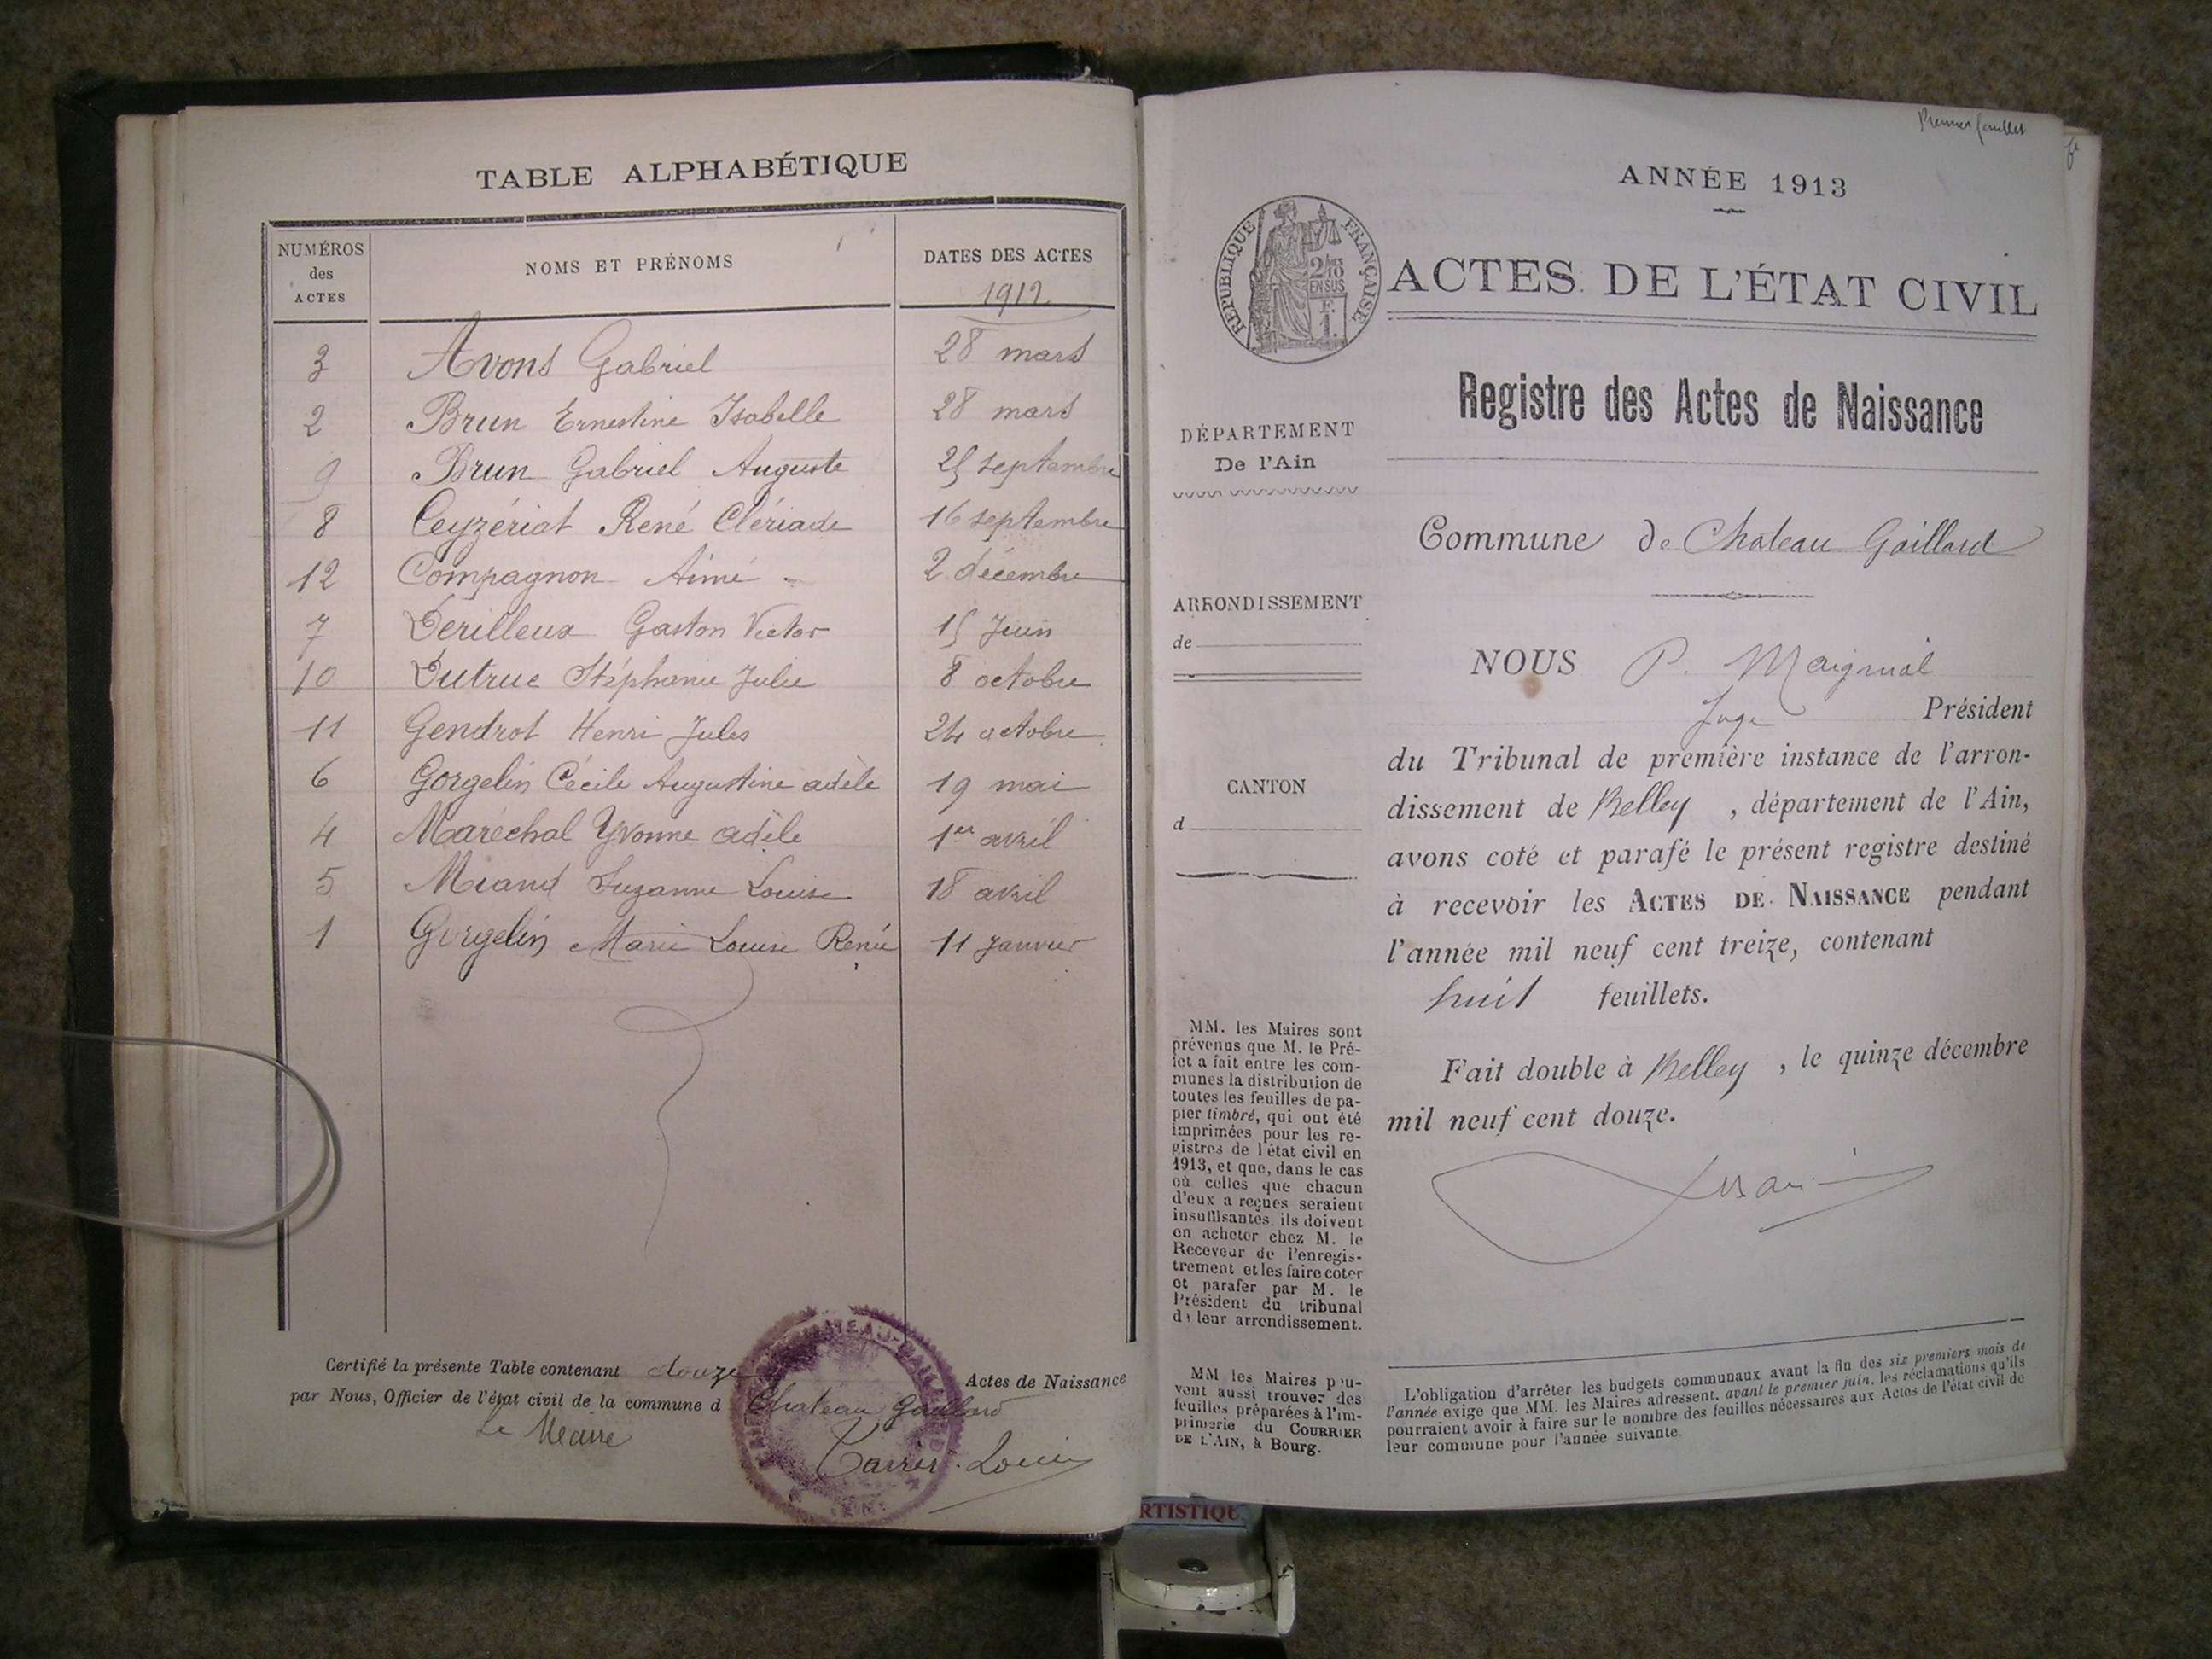 TABLE ALPHABÉTIQUE
NUMÉROS des ACTES
NOMS ET PRÉNOMS
DATES DES ACTES
1912
3 Avons Gabriel 28 mars
2 Brun Ernestine Isabelle 28 mars
9 Brun Gabriel Auguste 25 septembre
8 Ceyzériat René Clériade 16 septembre
12 Compagnon Aimé 2 décembre
7 Derilleux Gaston Victor 15 Juin
10 Dutruc Stéphanie Julie 8 octobre
11 Gendrot Henri Jules 24 octobre
6 Gorgelin Cécile Augustine adèle 19 mai
4 Maréchal Yvonne adèle 1er avril
5 Miand Suzanne Louise 18 avril
1 Gorgelin Marie Louise Renée 11 Janvier
Certifié la présente Table contenant douze Actes de Naissance
par Nous, Officier de l'état civil de la commune d Chateau Gaillard
Le Maire
Premier feuillet
ANNÉE 1913
RÉPUBLIQUE FRANÇAISE
2/10
EN SUS
F.
1.
ACTES DE L'ÉTAT CIVIL
Registre des Actes de Naissance
DÉPARTEMENT
De l'Ain
Commune de Chateau Gaillard
ARRONDISSEMENT
de
CANTON
d
NOUS P. Maignial
Juge Président
du Tribunal de première instance de l'arron-
dissement de Belley , département de l'Ain,
avons coté et parafé le présent registre destiné
à recevoir les ACTES DE NAISSANCE pendant
l'année mil neuf cent treize, contenant
huit feuillets.
Fait double à Belley , le quinze décembre
mil neuf cent douze.
MM. les Maires sont
prévenus que M. le Pré-
fet a fait entre les com-
munes la distribution de
toutes les feuilles de pa-
pier timbré, qui ont été
imprimées pour les re-
gistres de l'état civil en
1913, et que, dans le cas
où celles que chacun
d'eux a reçues seraient
insuffisantes, ils doivent
en acheter chez M. le
Receveur de l'enregis-
trement et les faire coter
et parafer par M. le
Président du tribunal
de leur arrondissement.
MM les Maires peu-
vent aussi trouver des
feuilles préparées à l'im-
primerie du COURRIER
DE L'AIN, à Bourg.
L'obligation d'arrêter les budgets communaux avant la fin des six premiers mois de
l'année exige que MM. les Maires adressent, avant le premier juin, les réclamations qu'ils
pourraient avoir à faire sur le nombre des feuilles nécessaires aux Actes de l'état civil de
leur commune pour l'année suivante.
RTISTIQU